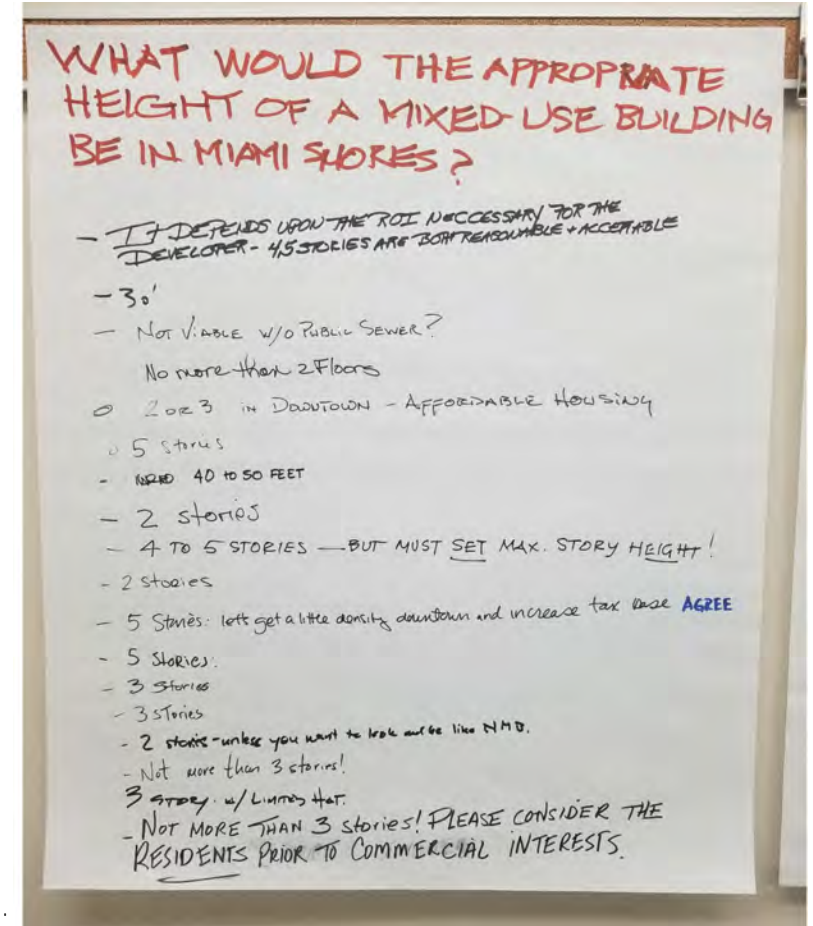 WHAT WOULD THE APPROPRIATE
HEIGHT OF A MIXED-USE BUILDING
BE IN MIAMI SHORES?
- IT DEPENDS UPON THE ROI NECCESSARY FOR THE
DEVELOPER - 4,5 STORIES ARE BOTH REASONABLE + ACCEPTABLE
- 30'
- NOT VIABLE W/O PUBLIC SEWER?
No more than 2 Floors
o 2 OR 3 IN DOWNTOWN - AFFORDABLE HOUSING
o 5 Stories
- 40 TO 50 FEET
- 2 stories
- 4 TO 5 STORIES - BUT MUST SET MAX. STORY HEIGHT!
- 2 Stories
- 5 Stories: let's get a little density downtown and increase tax base AGREE
- 5 Stories.
- 3 Stories
- 3 STories
- 2 stories - unless you want to look and be like NMB.
- Not more than 3 stories!
3 STORY w/ LIMITED HGT.
- NOT MORE THAN 3 stories! PLEASE CONSIDER THE
RESIDENTS PRIOR TO COMMERCIAL INTERESTS.